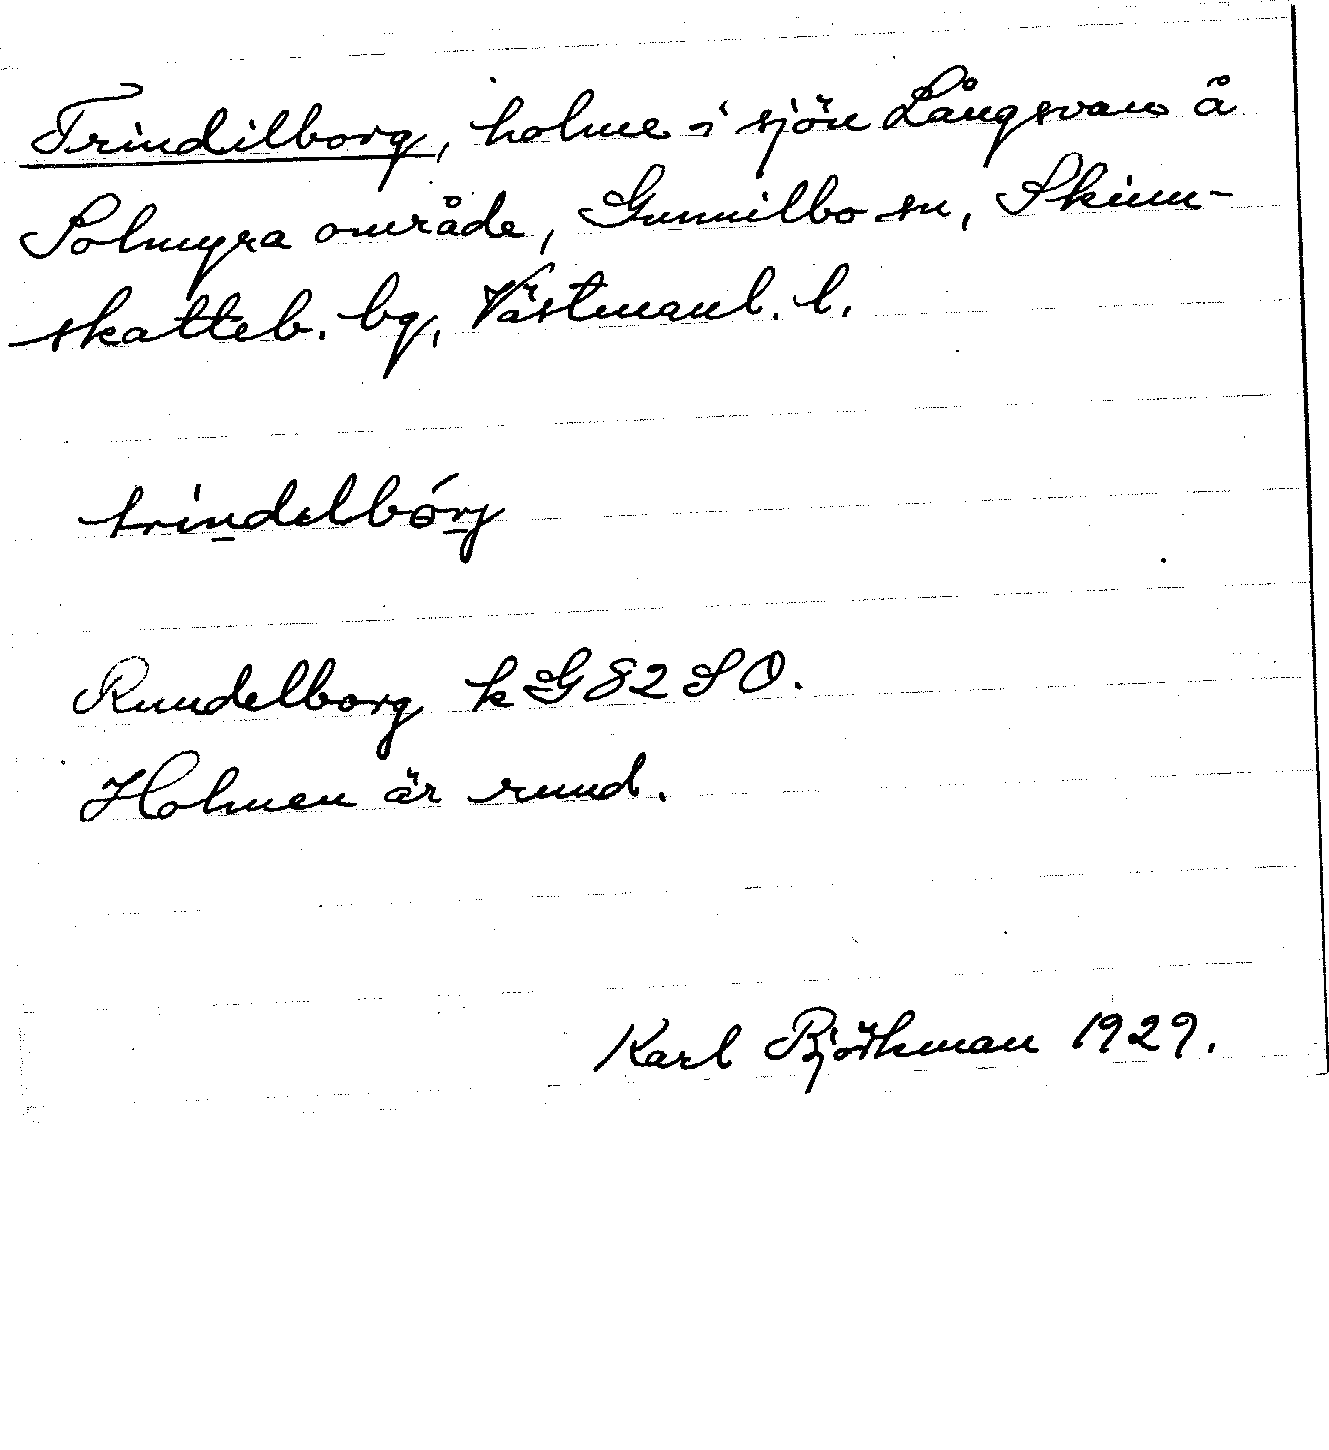 Trindilborg, holme i sjön Långsvan å
Solmyra område, Gunnilbo sn, Skinn-
skatteb. bg, Västmanl. l.
trindelbórj
Rundelborg k G 82 SO.
Holmen är rund.
Karl Björkman 1929.